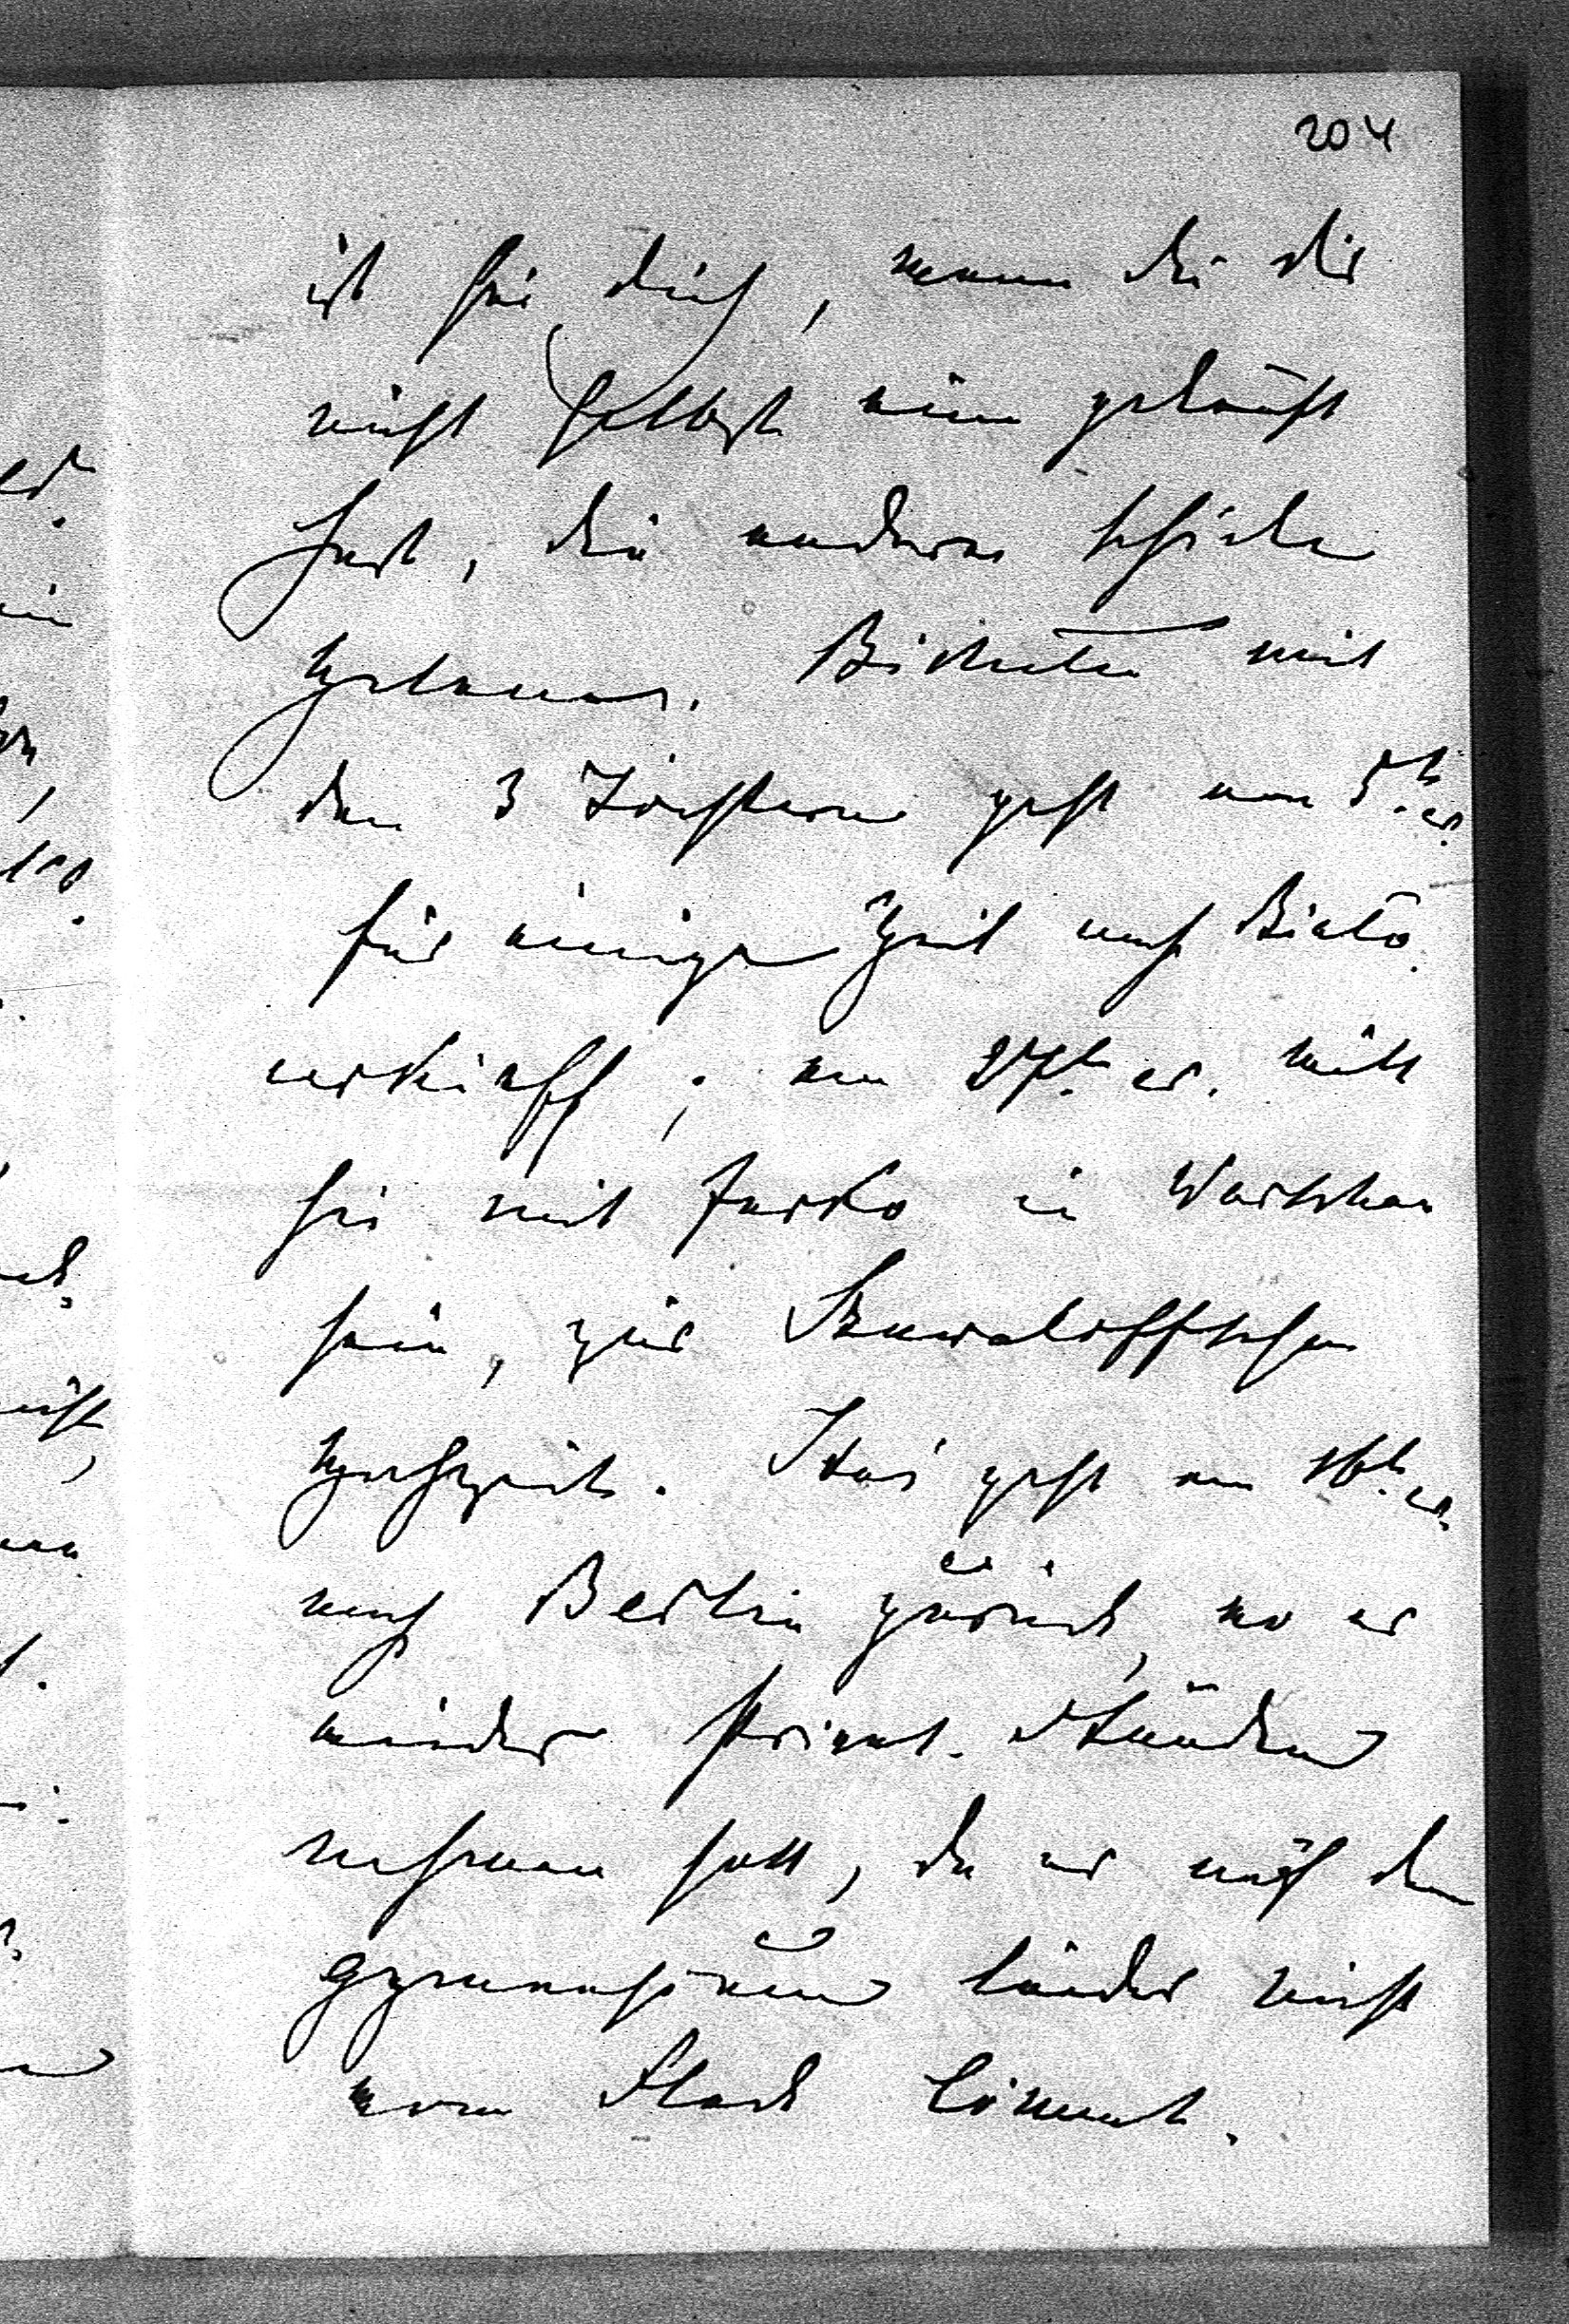 204
ist für dich, wenn du dir
nicht selbst eine gekauft
hast, die andere schicke
zusammen. Bichette mit
den 3 Töchtern geht am 5t. cr.
für einige Zeit nach Bialo
cerkieff; am 27t. cr. will
sie mit Jerko in Warschau
sein, zur Suwaloffschen
Hochzeit. Stas geht am 16t. cr.
nach Berlin zurück, wo er
wieder Privat-Stunden
nehmen soll, da er auf dem
Gymnasium leider nicht
vom Fleck kommt.